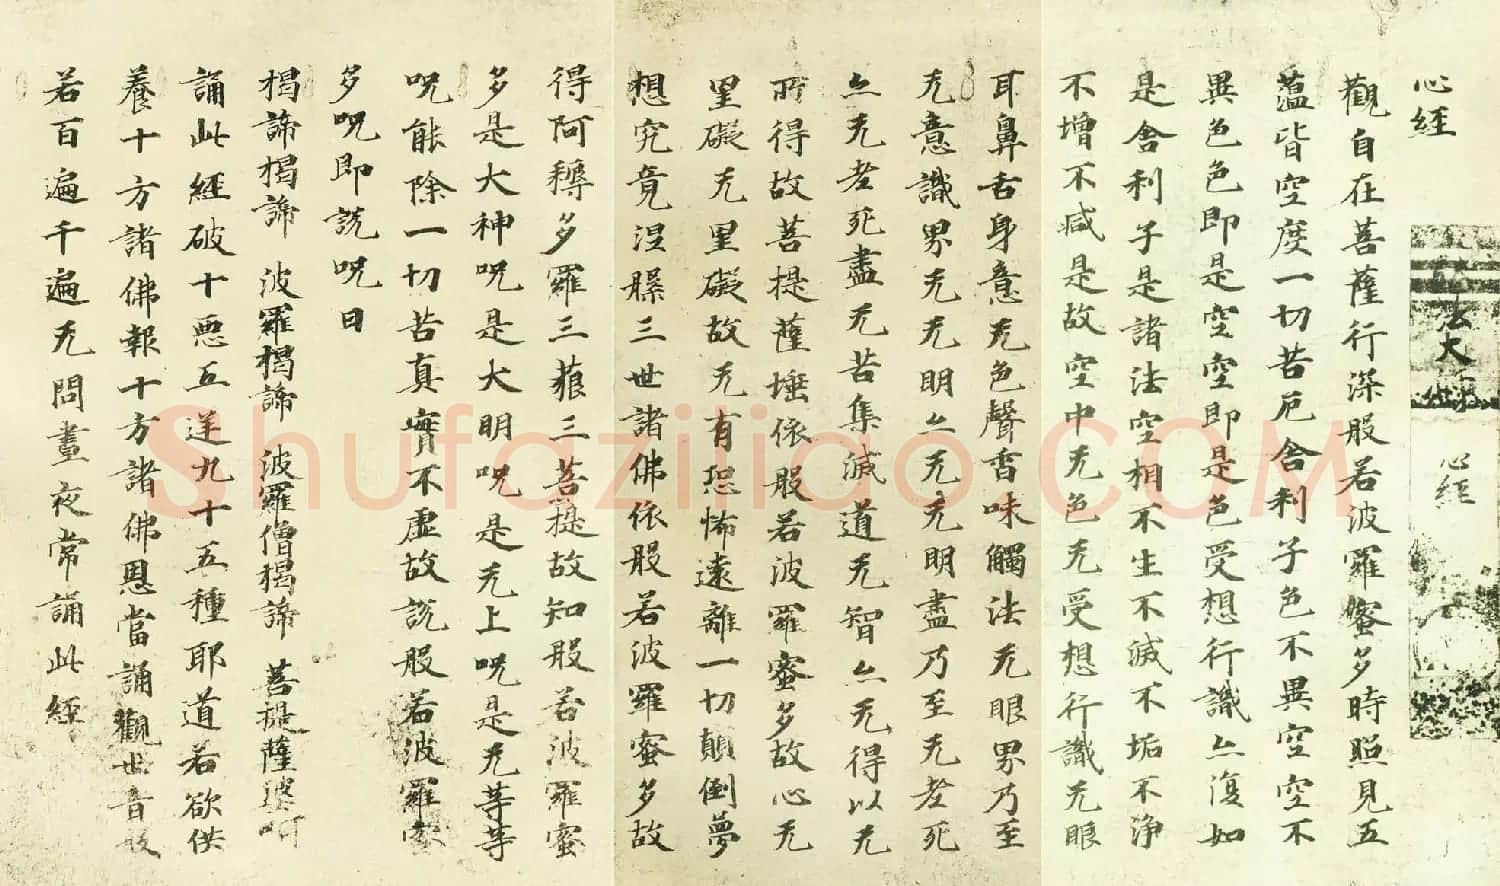 心經
法大
心經
觀自在菩薩行深般若波羅蜜多時照見五
蘊皆空度一切苦厄舍利子色不異空空不
異色色即是空空即是色受想行識亦復如
是舍利子是諸法空相不生不滅不垢不淨
不增不減是故空中无色无受想行識无眼
耳鼻舌身意无色聲香味觸法无眼界乃至
无意識界无无明亦无无明盡乃至无老死
亦无老死盡无苦集滅道无智亦无得以无
所得故菩提薩埵依般若波羅蜜多故心无
罣礙无罣礙故无有恐怖遠離一切顛倒夢
想究竟涅槃三世諸佛依般若波羅蜜多故
得阿耨多羅三藐三菩提故知般若波羅蜜
多是大神呪是大明呪是无上呪是无等等
呪能除一切苦真實不虛故說般若波羅蜜
多呪即說呪曰
揭諦揭諦 波羅揭諦 波羅僧揭諦 菩提薩婆呵
誦此經破十惡五逆九十五種耶道若欲供
養十方諸佛報十方諸佛恩當誦觀世音般
若百遍千遍无問晝夜常誦此經
shufaziliao.COM